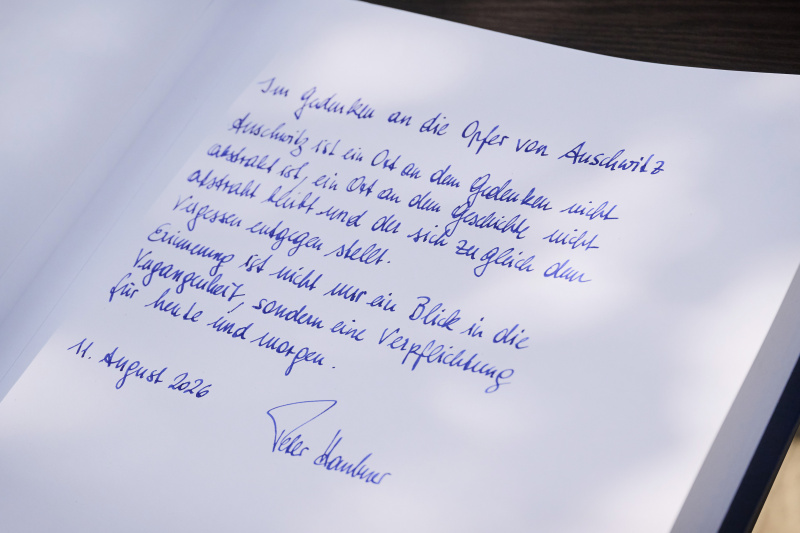 Im Gedenken an die Opfer von Auschwitz
Auschwitz ist ein Ort an dem Gedenken nicht
abstrakt ist, ein Ort an dem Geschichte nicht
abstrakt bleibt und der sich zugleich dem
Vergessen entgegen stellt.
Erinnerung ist nicht nur ein Blick in die
Vergangenheit, sondern eine Verpflichtung
für heute und morgen.
11. August 2026
Peter Haubner